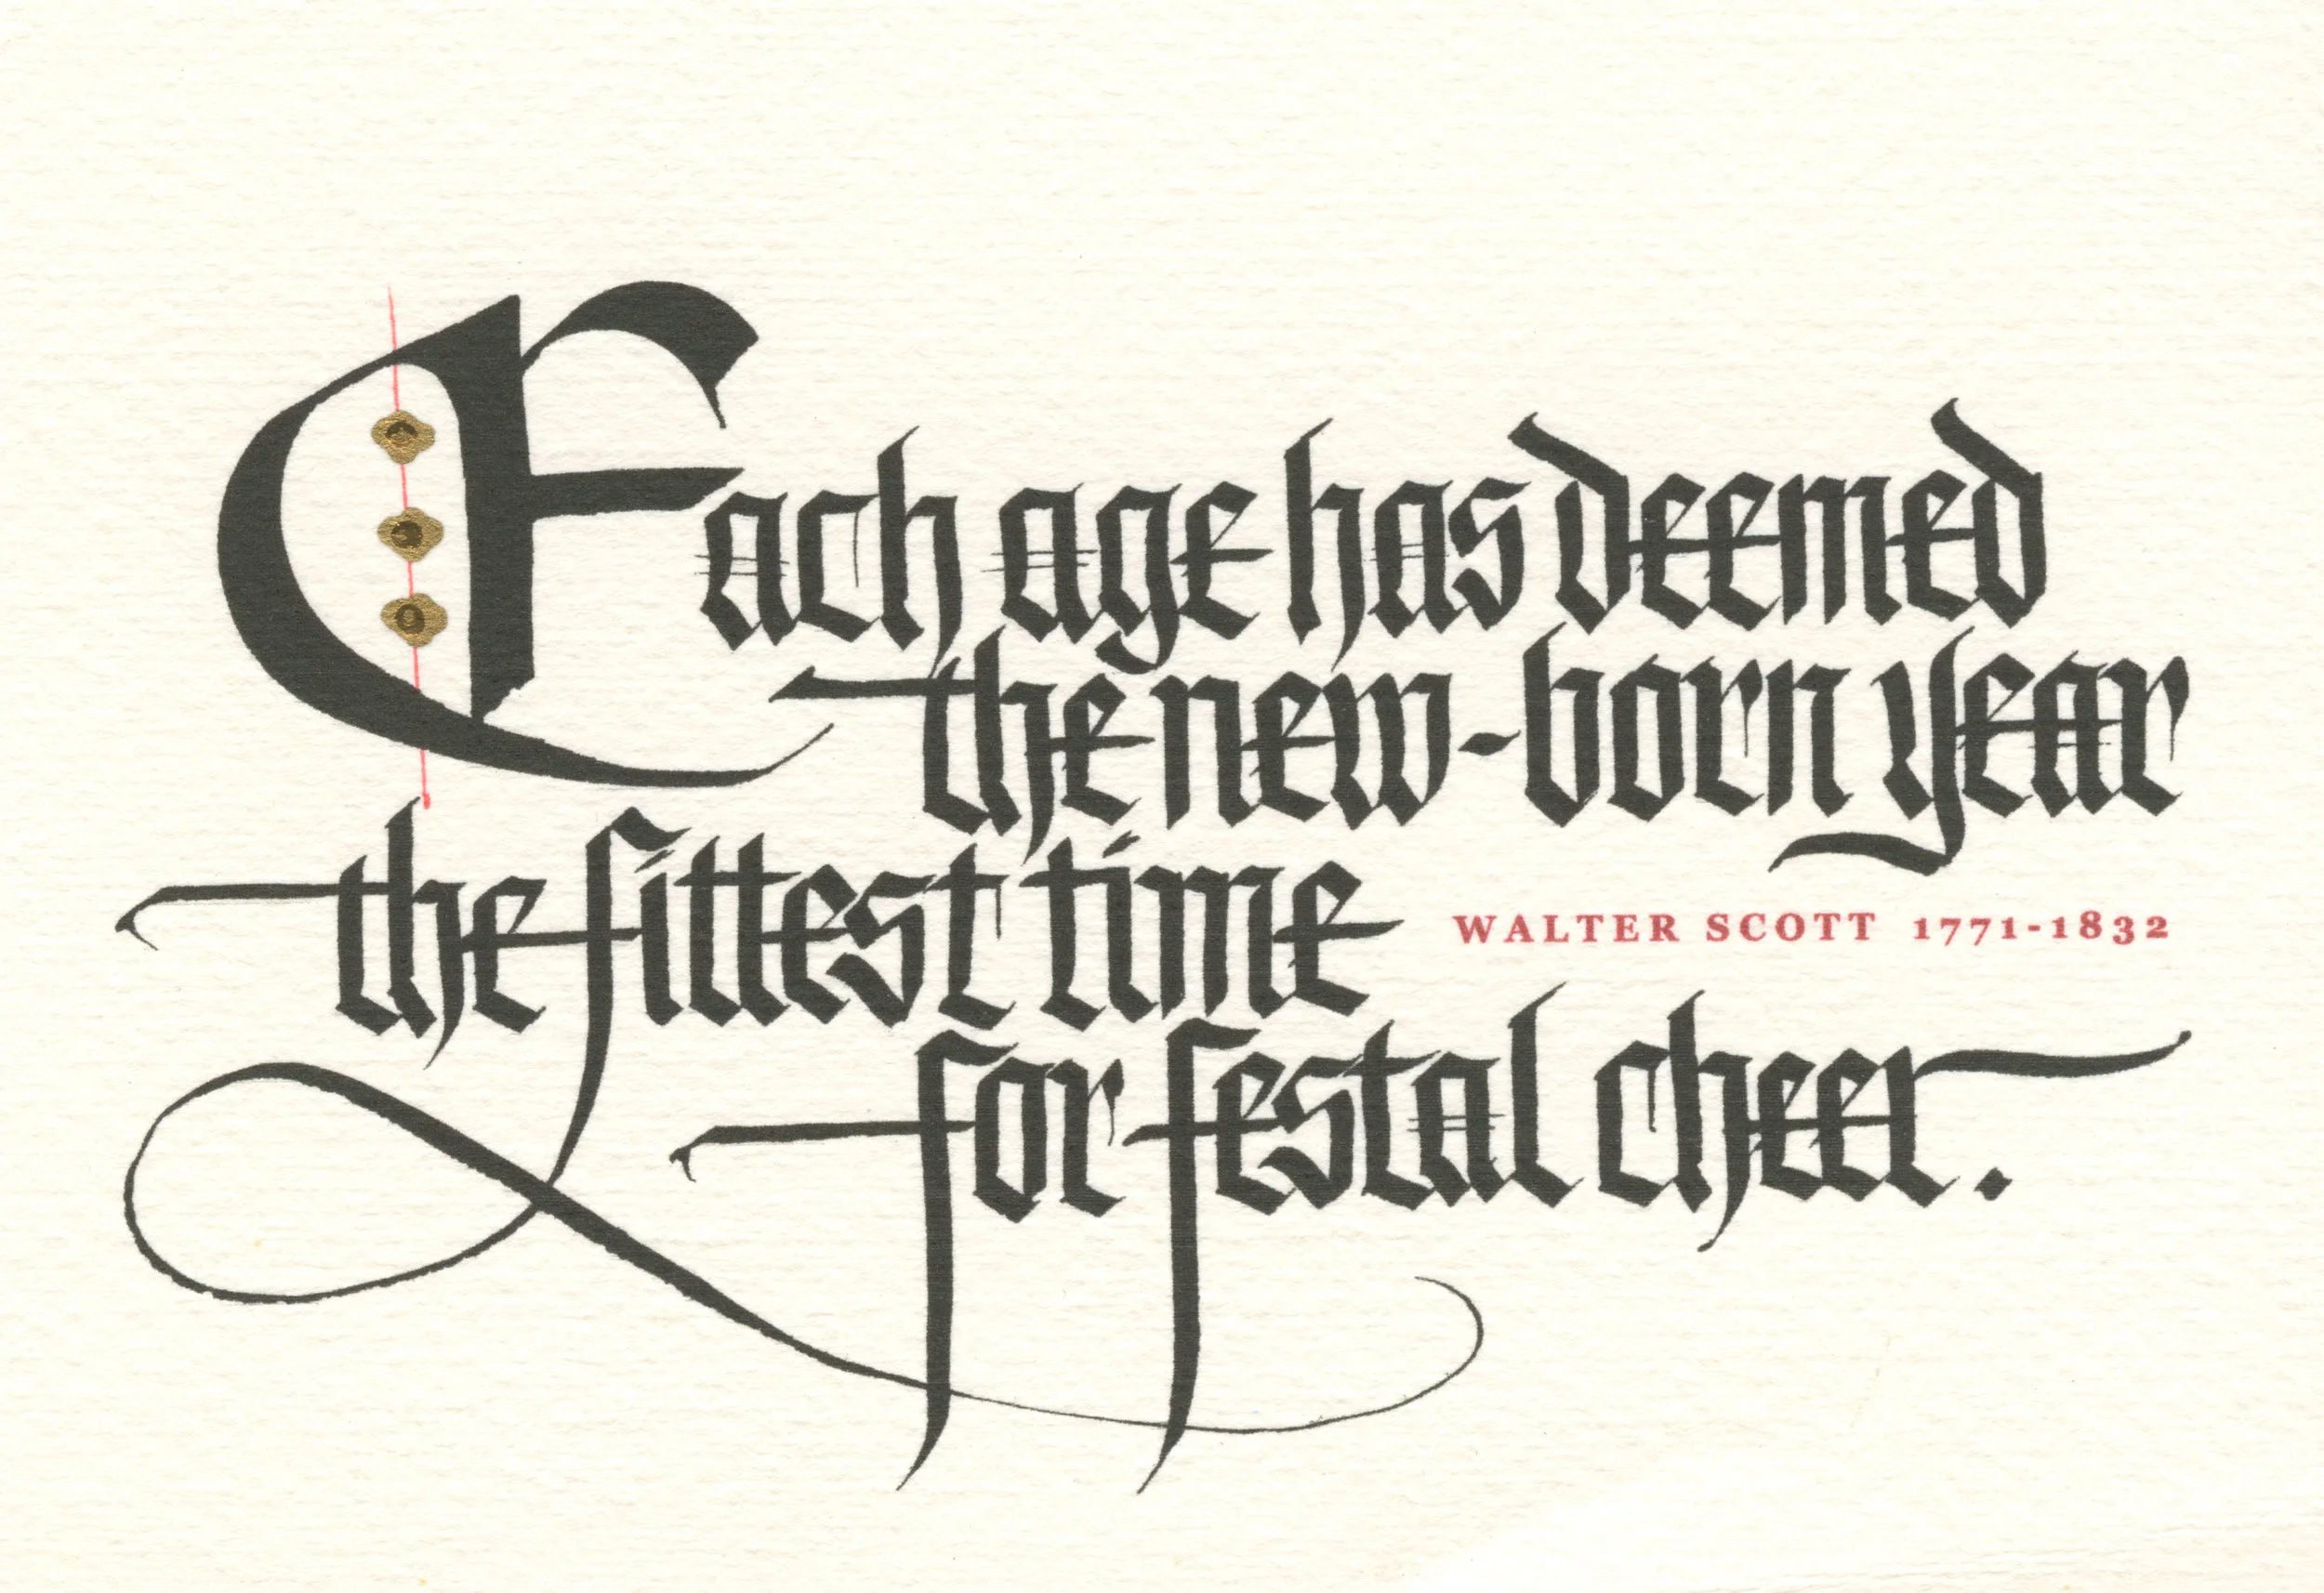 Each age has deemed
the new-born year
the fittest time
WALTER SCOTT 1771-1832
for festal cheer.